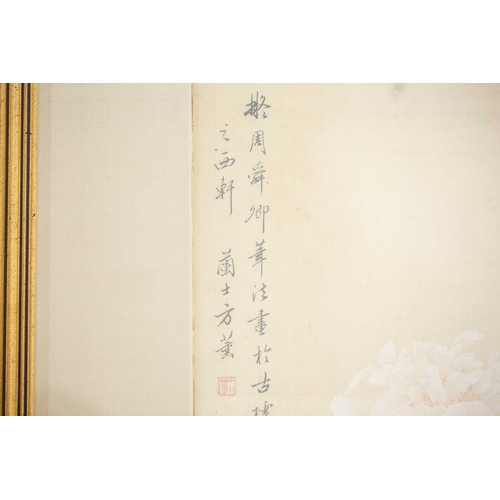 擬周舜卿筆法畫於古
之酒軒　蘭士方薰